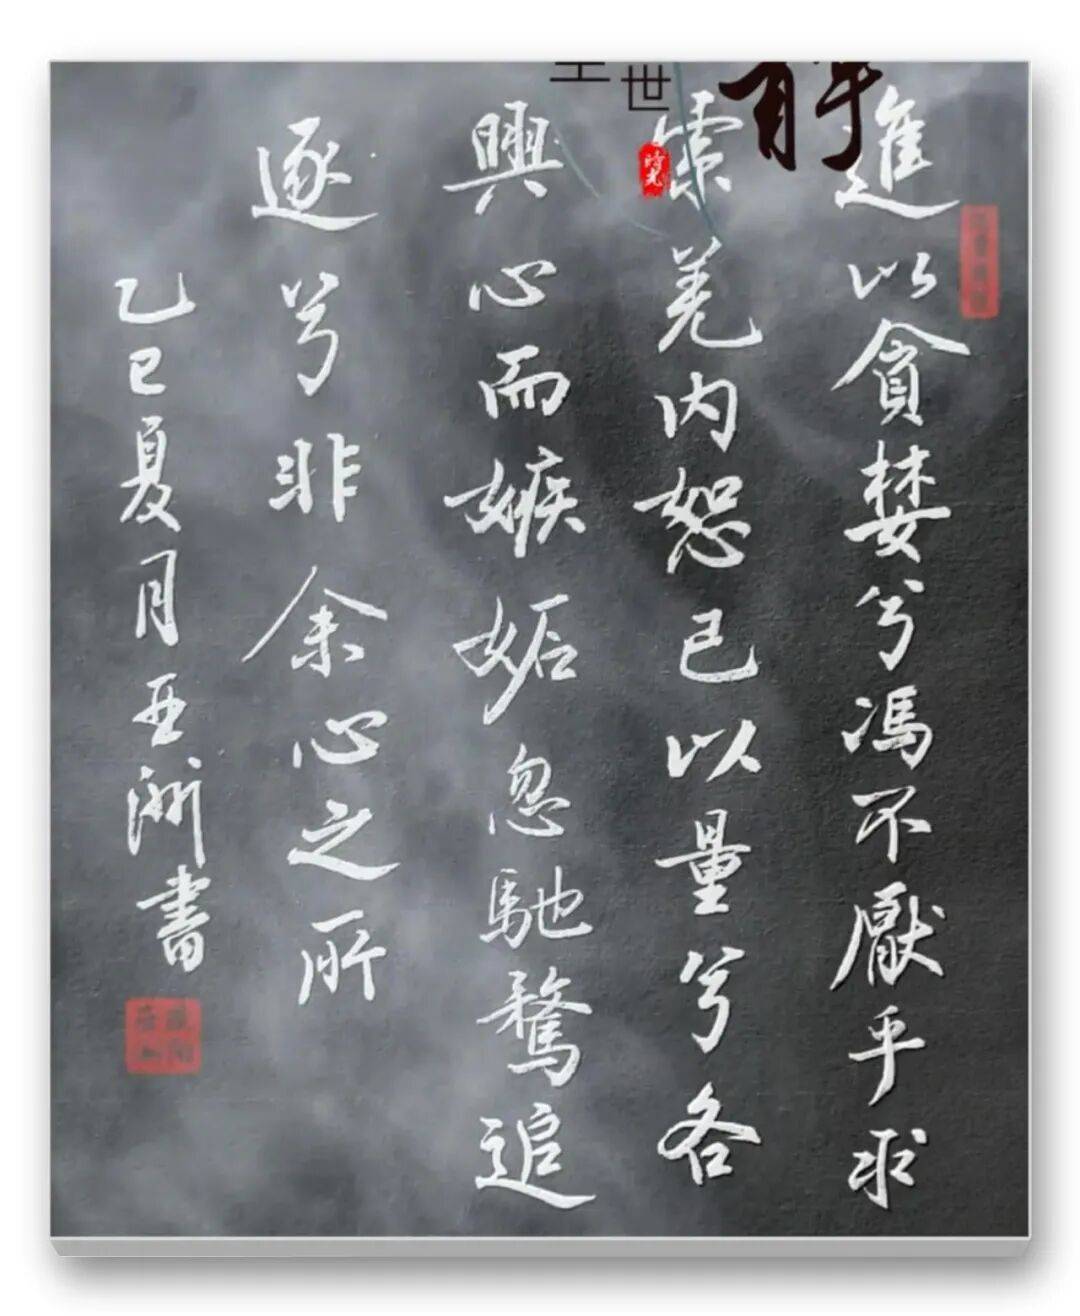 進以貪婪兮馮不厭乎求
索羌内恕己以量兮各
興心而嫉妬忽馳騖追
逐兮非余心之所
乙巳夏月亚洲書
世
時光